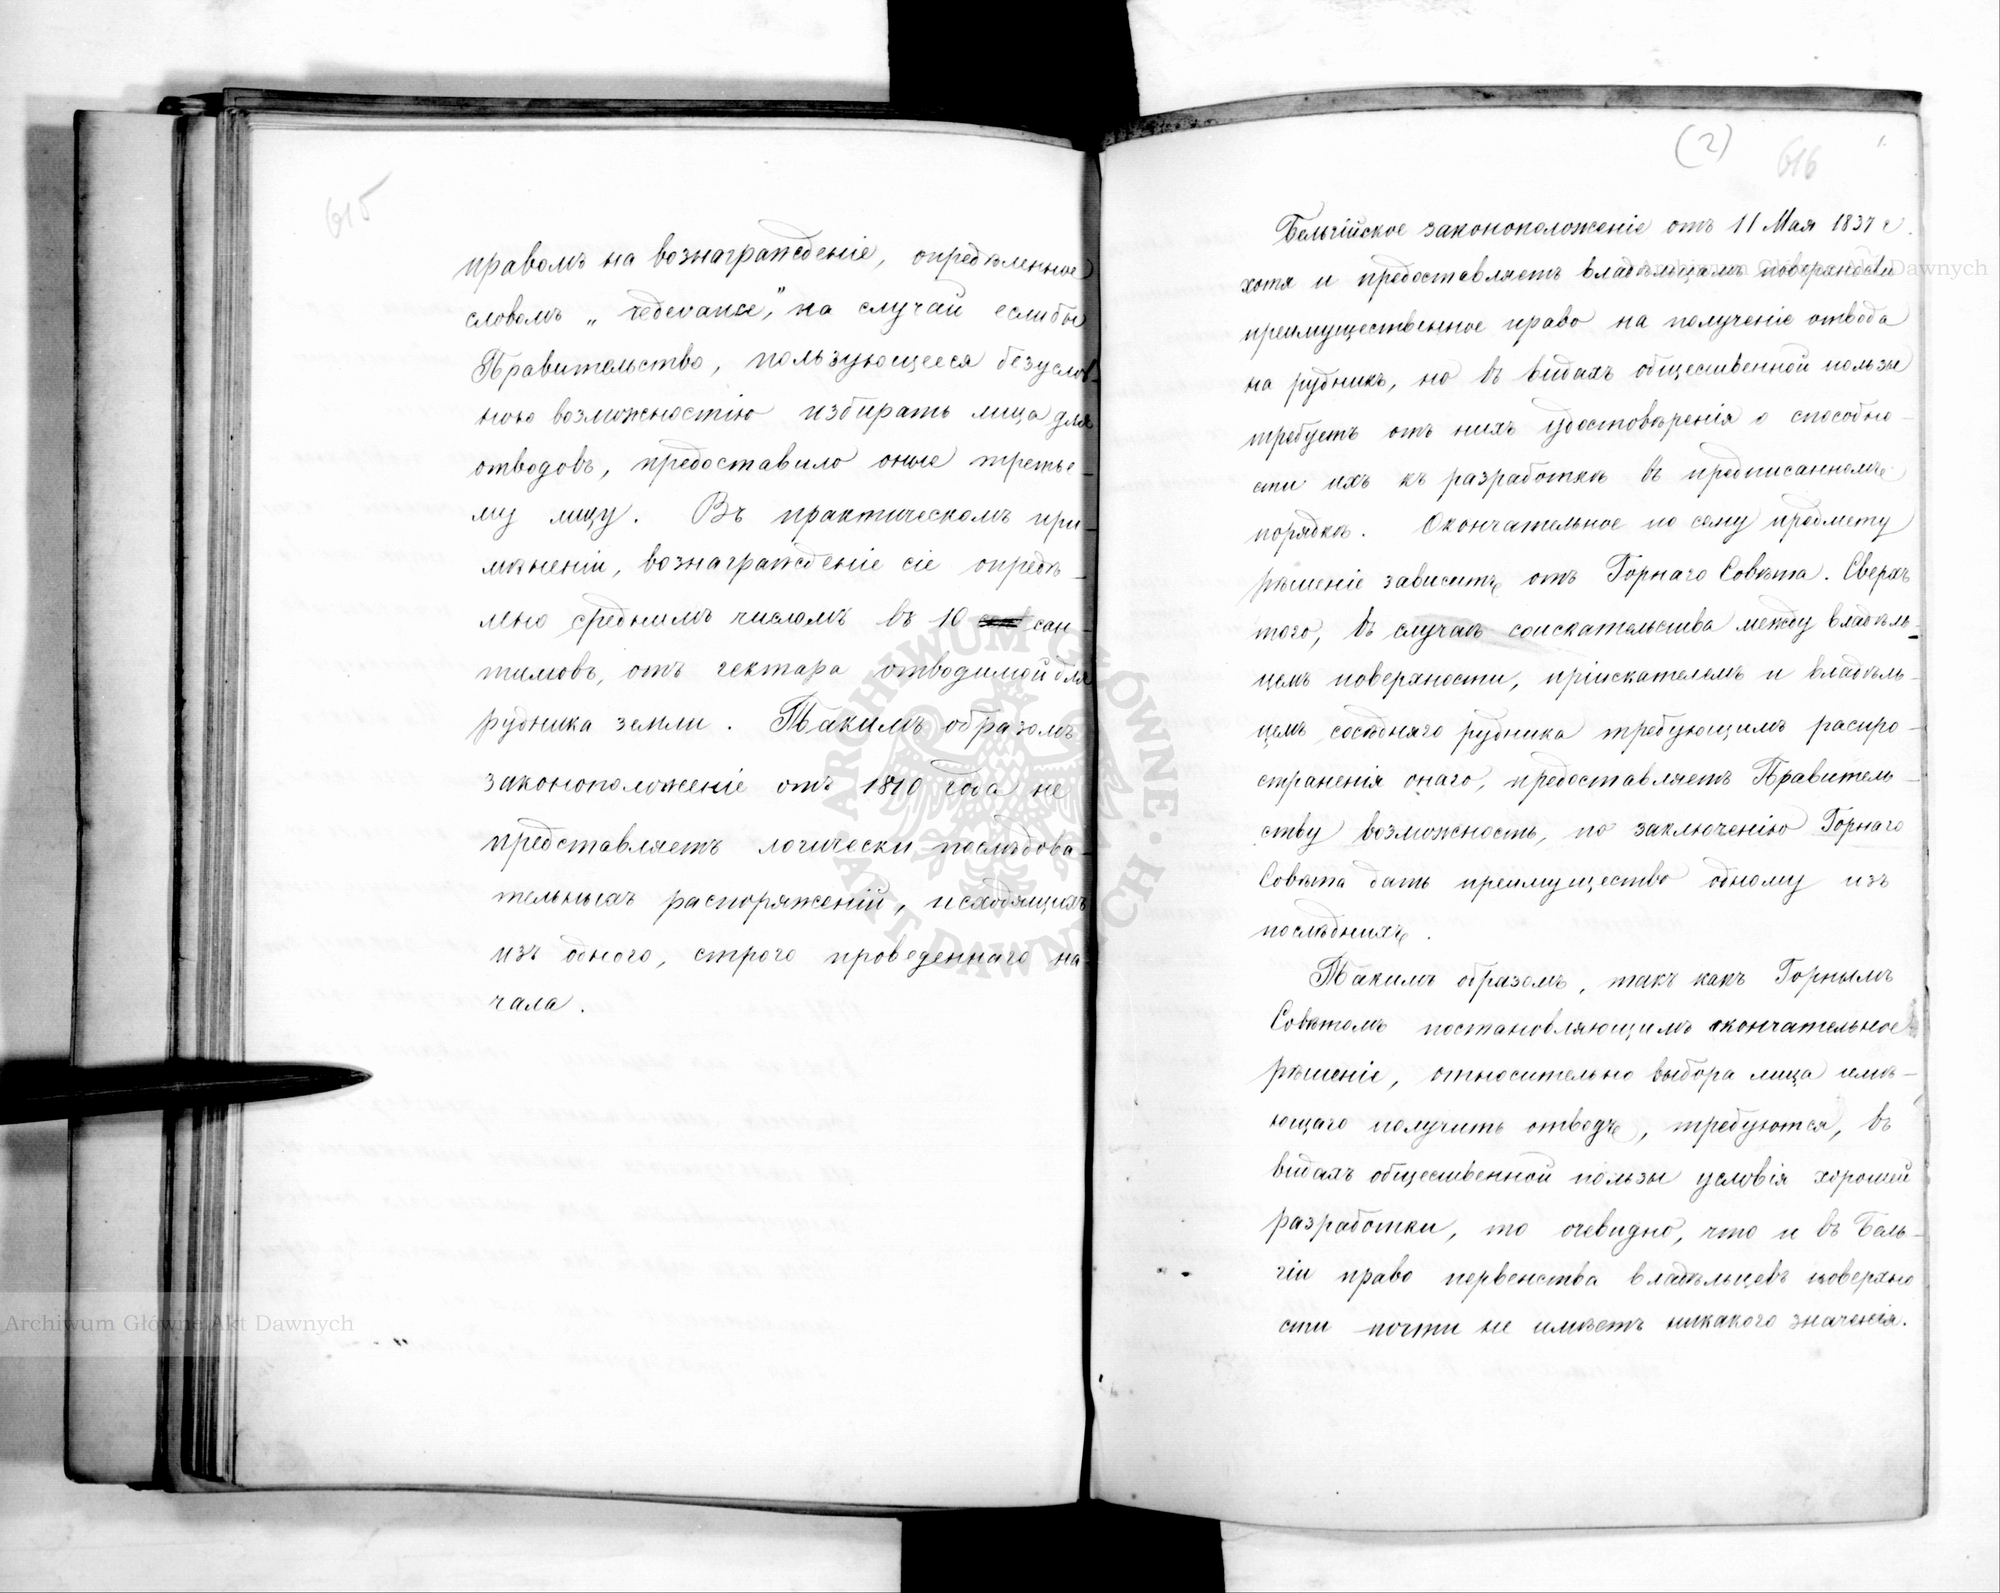 615
правомъ на вознагражденіе, опредѣленное
словомъ „redevance," на случай еслибы
Правительство, пользующееся безуслов-
ною возможностію избирать лица для
отводовъ, предоставило оные третье-
му лицу. Въ практическомъ при-
мѣненіи, вознагражденіе сіе опредѣ-
лено среднимъ числомъ въ 10 сан-
тимовъ, отъ гектара отводимой для
рудника земли. Такимъ образомъ
законоположеніе отъ 1810 года не
представляетъ логически послѣдова-
тельныхъ распоряженій, исходящихъ
изъ одного, строго проведеннаго на-
чала.
(2) 616
Бельгійское законоположеніе отъ 11 Мая 1837 г.
хотя и предоставляетъ владѣльцамъ поверхности
преимущественное право на полученіе отвода
на рудникъ, но въ видахъ общественной пользы
требуетъ отъ нихъ удостовѣренія о способно-
сти ихъ къ разработкѣ въ предписанномъ
порядкѣ. Окончательное по сему предмету
рѣшеніе зависитъ отъ Горнаго Совѣта. Сверхъ
того, въ случаѣ соискательства между владѣль-
цемъ поверхности, пріискателемъ и владѣль-
цемъ сосѣдняго рудника требующимъ распро-
страненія онаго, предоставляетъ Правитель-
ству возможность, по заключенію Горнаго
Совѣта дать преимущество одному изъ
послѣднихъ.
Такимъ образомъ, такъ какъ Горнымъ
Совѣтомъ постановляющимъ окончательное
рѣшеніе, относительно выбора лица имѣ-
ющаго получить отводъ, требуются, въ
видахъ общественной пользы условія хорошей
разработки, то очевидно, что и въ Бель-
гіи право первенства владѣльцевъ поверхно
сти почти не имѣетъ никакого значенія.
Archiwum Główne Akt Dawnych
Archiwum Główne Akt Dawnych
ARCHIWUM GŁÓWNE AKT DAWNYCH